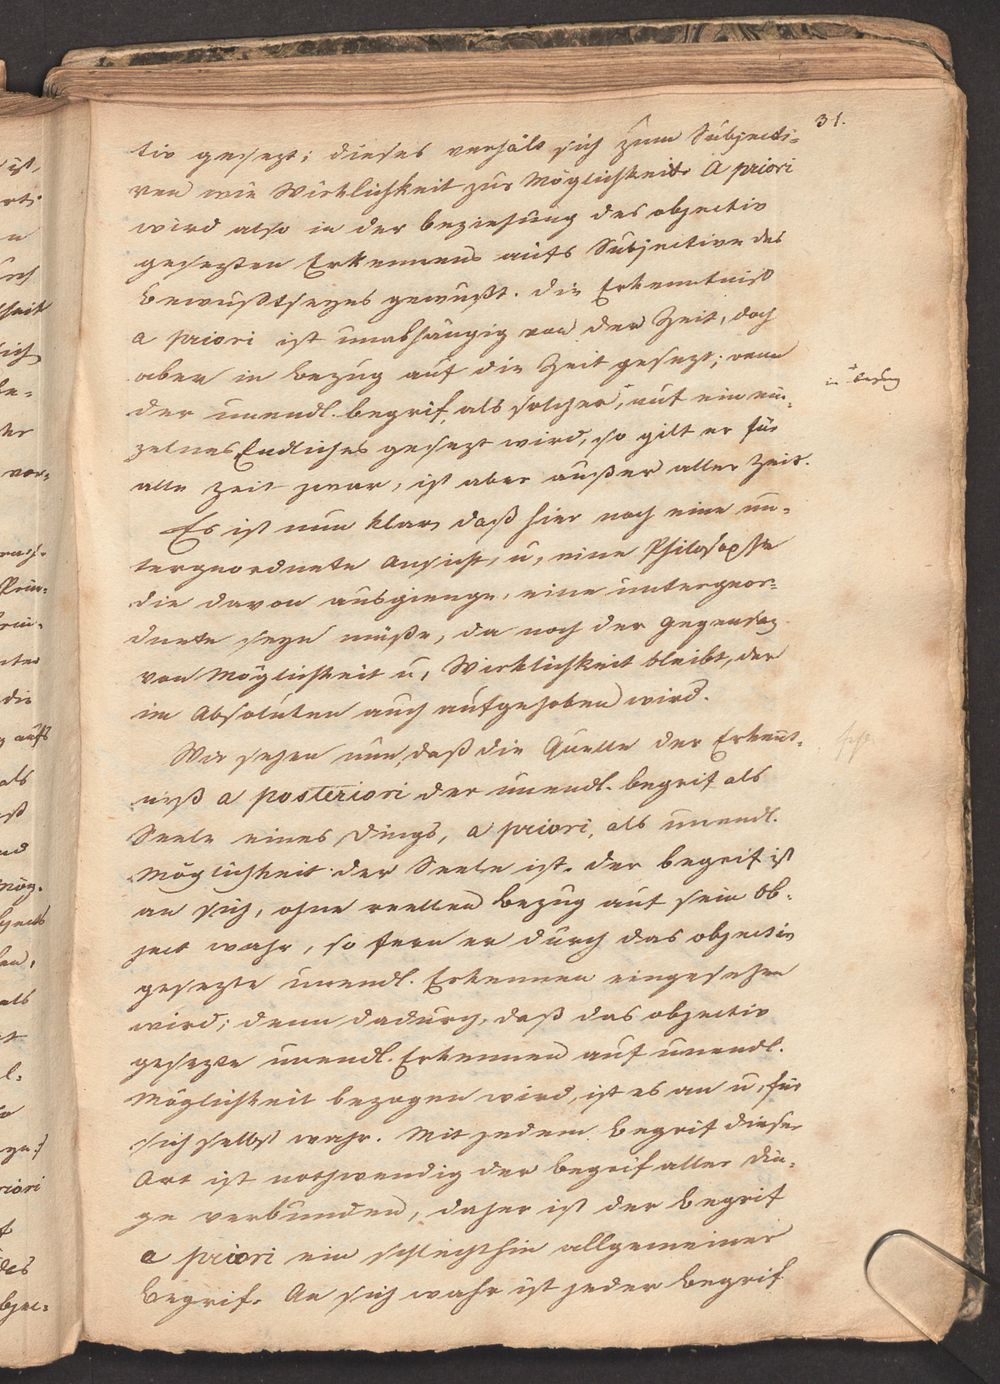 31.
tiv gesezt; dieses verhält sich zum Subjecti-
ven wie Wirklichkeit zur Möglichkeit. A priori
wird also in der beziehung des objectiv
gesezten Erkennens aufs Subjective des
bewußtseyns gewußt. die Erkenntniß
a priori ist unabhängig von der Zeit, doch
aber in bezug auf die Zeit gesezt; wenn
der unendl. begrif, als solcher, auf ein ein-
zelnes Endliches gesezt wird, so gilt er für
alle Zeit zwar, ist aber außer aller Zeit.
Es ist nun klar, daß hier noch eine un-
tergeordnete Ansicht, u, eine Philosophie
die davon ausgienge, eine untergeor-
dnete seyn müße, da noch der Gegensaz
von Möglichkeit u, Wirklichkeit bleibt, der
im Absoluten auch aufgehoben wird.
Wir sehen nun, daß die Quelle der Erkennt-
niß a posteriori der unendl. begrif als
Seele eines Dings, a priori, als unendl.
Möglichkeit der Seele ist. der begrif ist
an sich, ohne reellen bezug auf sein Ob-
ject wahr, so fern er durch das objectiv
gesezte unendl. Erkennen eingesehen
wird; denn dadurch, daß das objectiv
gesezte unendl. Erkennen auf unendl.
Möglichkeit bezogen wird, ist es an u, für
sich selbst wahr. Mit jedem begrif dieser
Art ist nothwendig der begrif aller Din-
ge verbunden, daher ist der begrif
a priori ein schlechthin allgemeiner
begrif. An sich wahr ist jeder begrif
in bezug